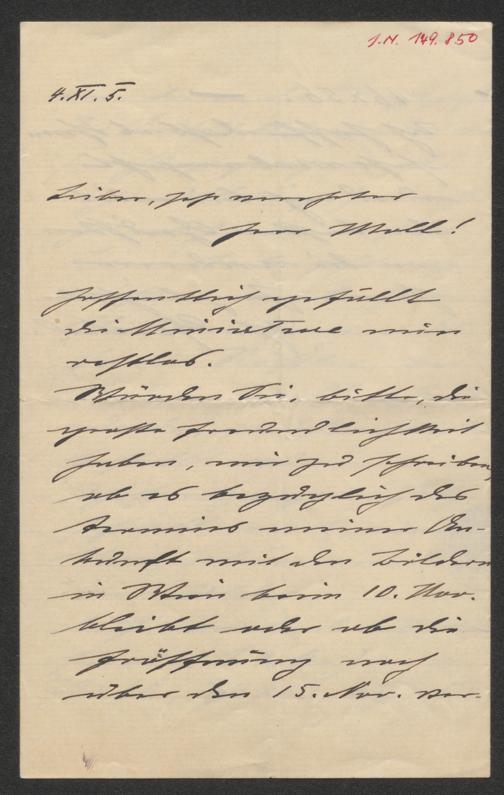 J.N. 149.850
4. XI. 5.
Lieber, sehr verehrter
Herr Moll!
Hoffentlich gefällt
die Miniature nun
restlos.
Würden Sie, bitte, die
große Freundlichkeit
haben, mir zu schreiben,
ob es bezüglich des
Termins meiner An-
kunft mit den Bildern
in Wien beim 10. Nov.
bleibt oder ob die
Eröffnung noch
über den 15. Nov. ver-